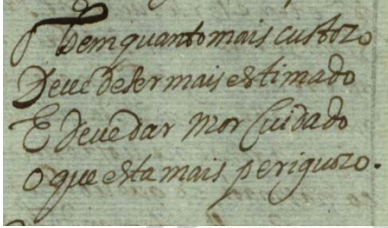 O bem quanto mais custozo
Deue de ser mais estimado
E deue dar mor Cuidado
O que esta mais periguozo.